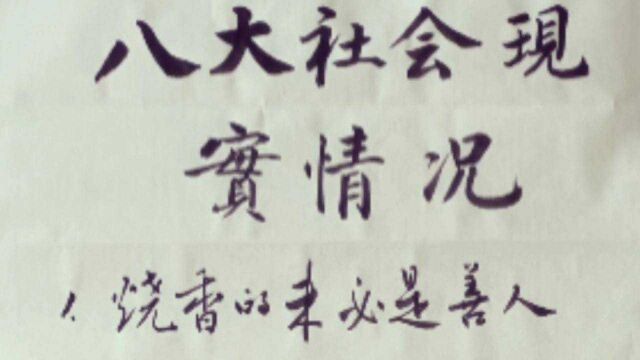 八大社会現
實情况
1.烧香的未必是善人